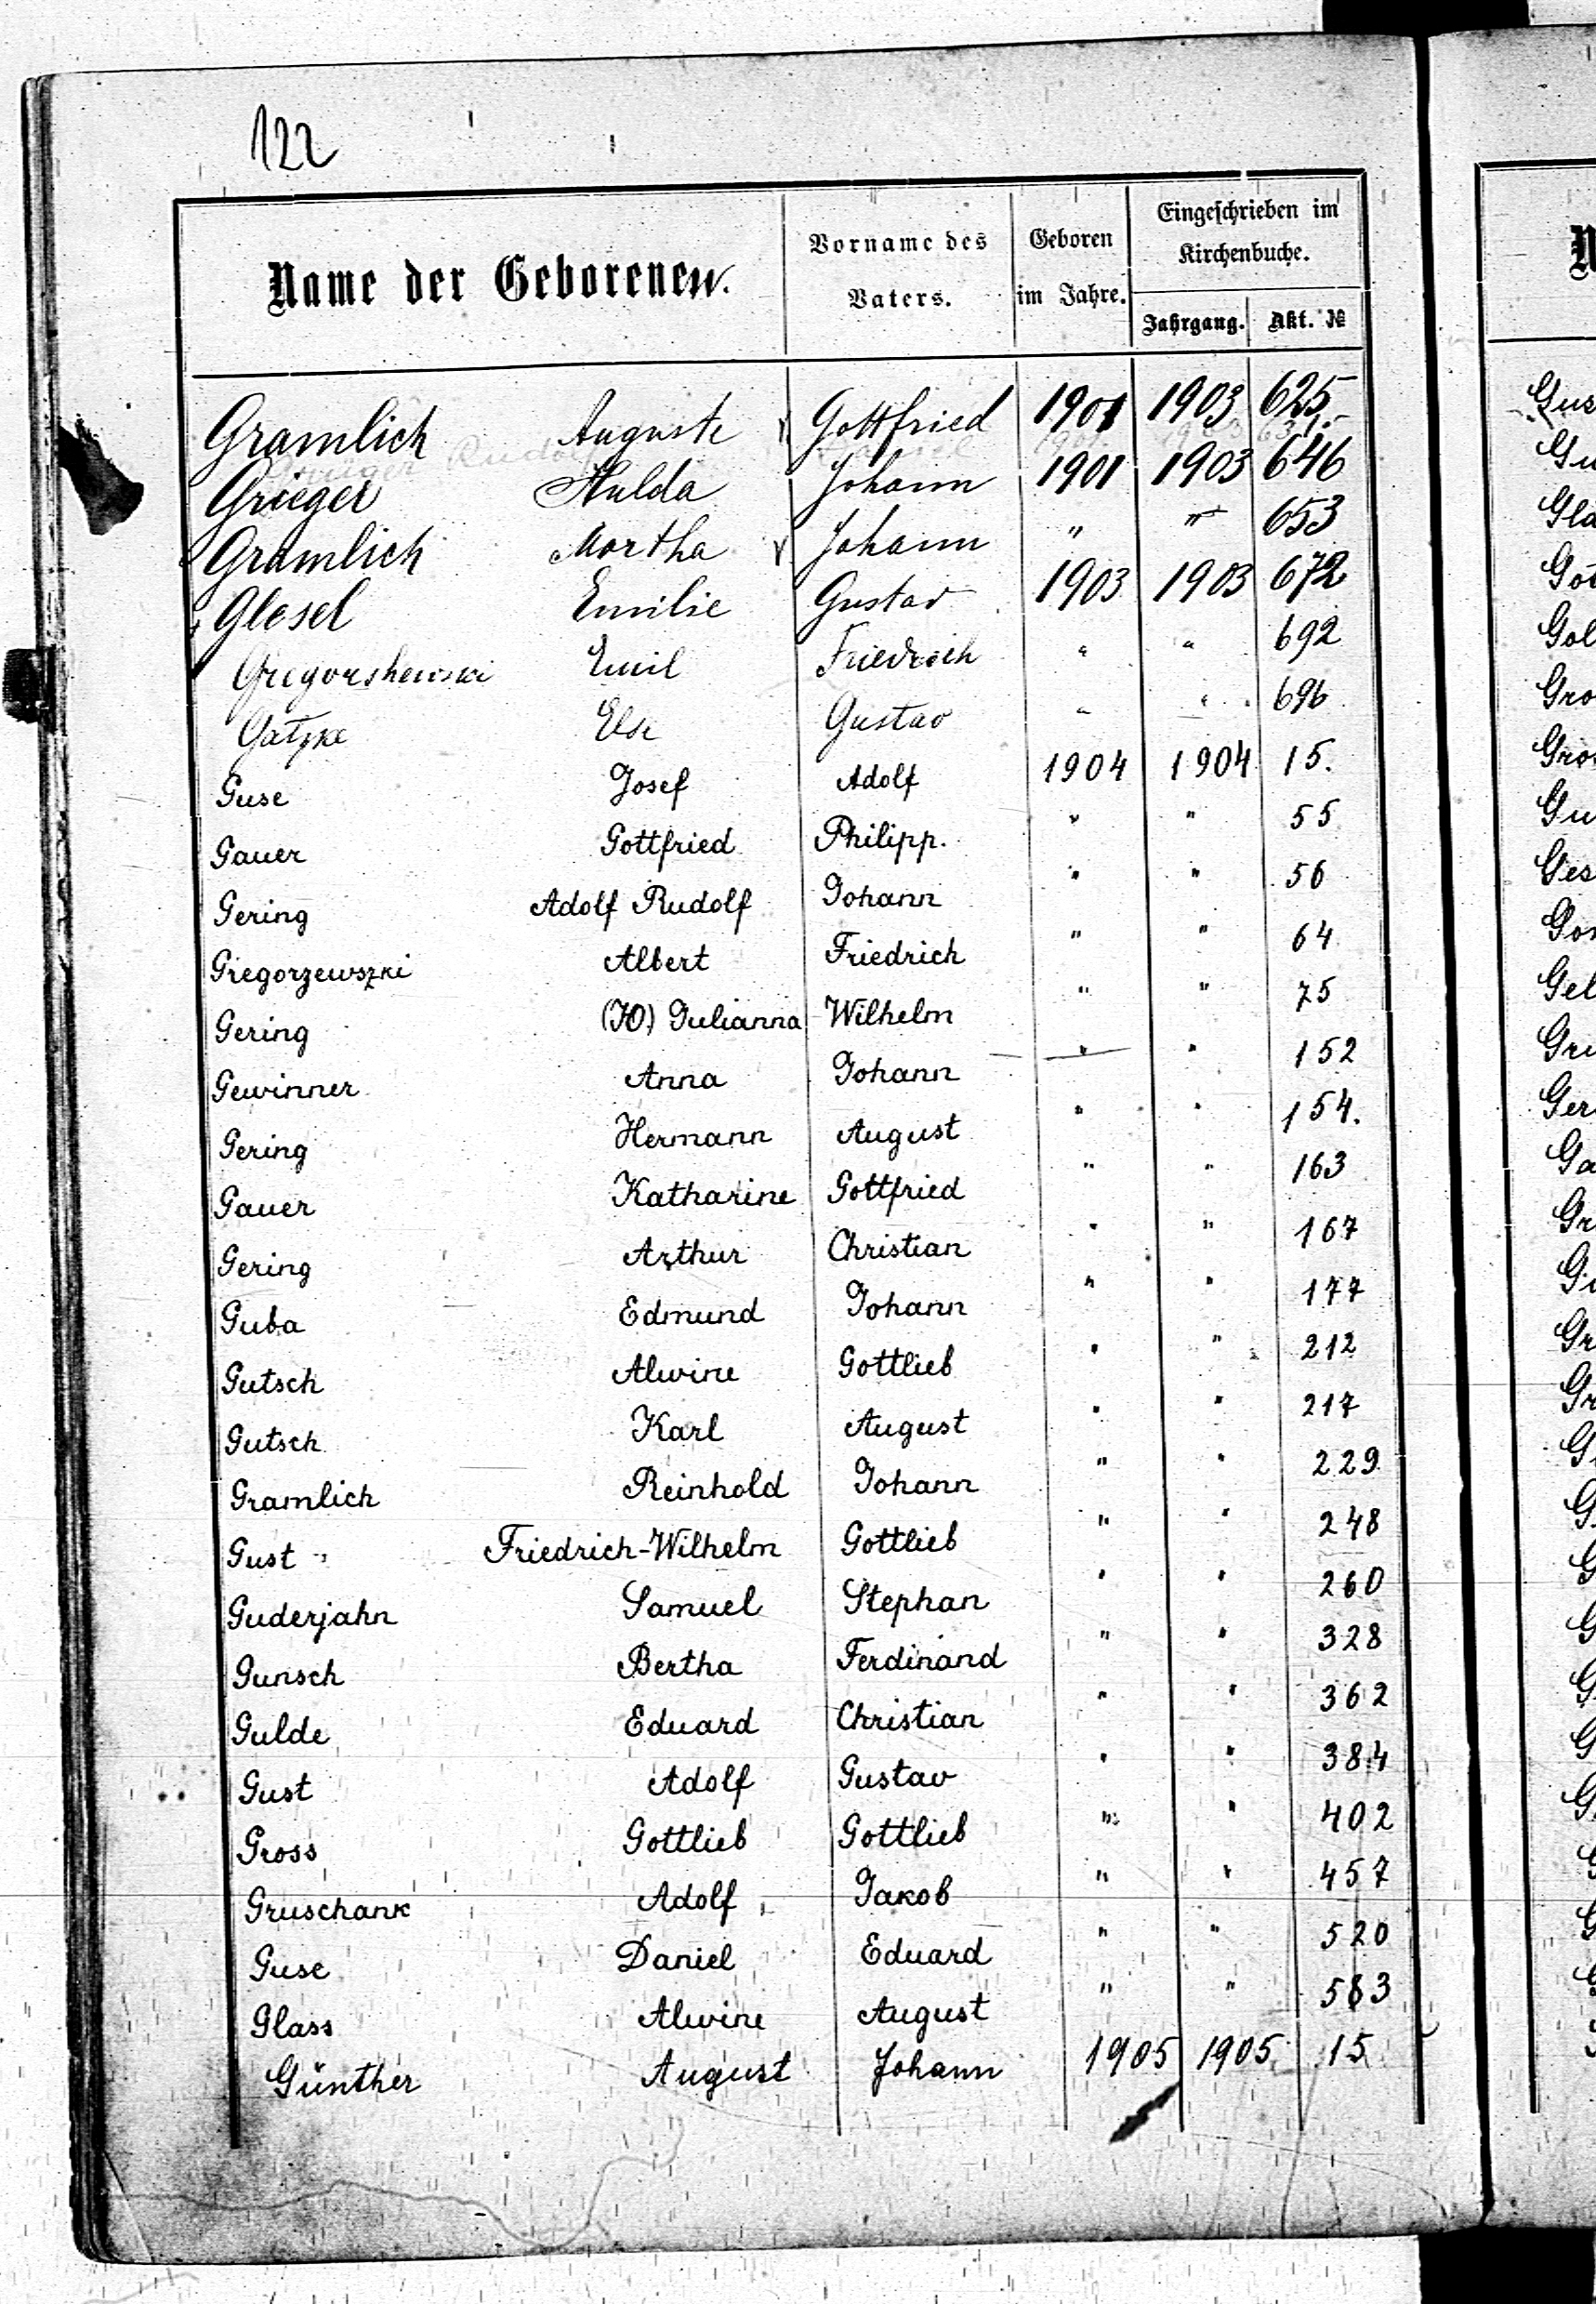 122
Name der Geborenen. Vorname des Vaters. Geboren im Jahre. Eingeschrieben im Kirchenbuche.
Jahrgang. Akt. №
Gramlich Auguste Gottfried 1901 1903 625
Grieger Rudolf
Grieger Hulda Johann 1901 1903 646
Gramlich Martha Johann " " 653
Glesel Emilie Gustav 1903 1903 672
Gregorshewski Emil Friedrich " " 692
Gatzke Else Gustav " " 696
Guse Josef Adolf 1904 1904 15.
Gauer Gottfried Philipp. " " 55
Gering Adolf Rudolf Johann " " 56
Gregorzewszki Albert Friedrich " " 64
Gering (Ю) Julianna Wilhelm " " 75
Gewinner Anna Johann " " 152
Gering Hermann August " " 154.
Gauer Katharine Gottfried " " 163
Gering Arthur Christian " " 167
Guba Edmund Johann " " 177
Gutsch Alwine Gottlieb " " 212
Gutsch Karl August " " 217
Gramlich Reinhold Johann " " 229
Gust Friedrich-Wilhelm Gottlieb " " 248
Guderjahn Samuel Stephan " " 260
Gunsch Bertha Ferdinand " " 328
Gulde Eduard Christian " " 362
Gust Adolf Gustav " " 384
Gross Gottlieb Gottlieb " " 402
Gruschank Adolf Jakob " " 457
Guse Daniel Eduard " " 520
Glass Alwine August " " 583
Günther August Johann 1905 1905 15